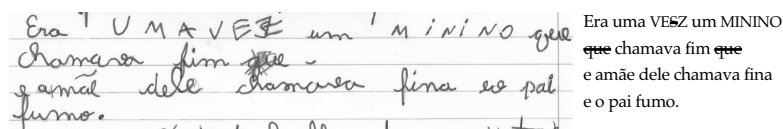 Era UMAVESZ um MININO que
chamava fim que
e amãe dele chamava fina e o pai
fumo.
Era uma VESZ um MININO
que chamava fim que
e amãe dele chamava fina
e o pai fumo.